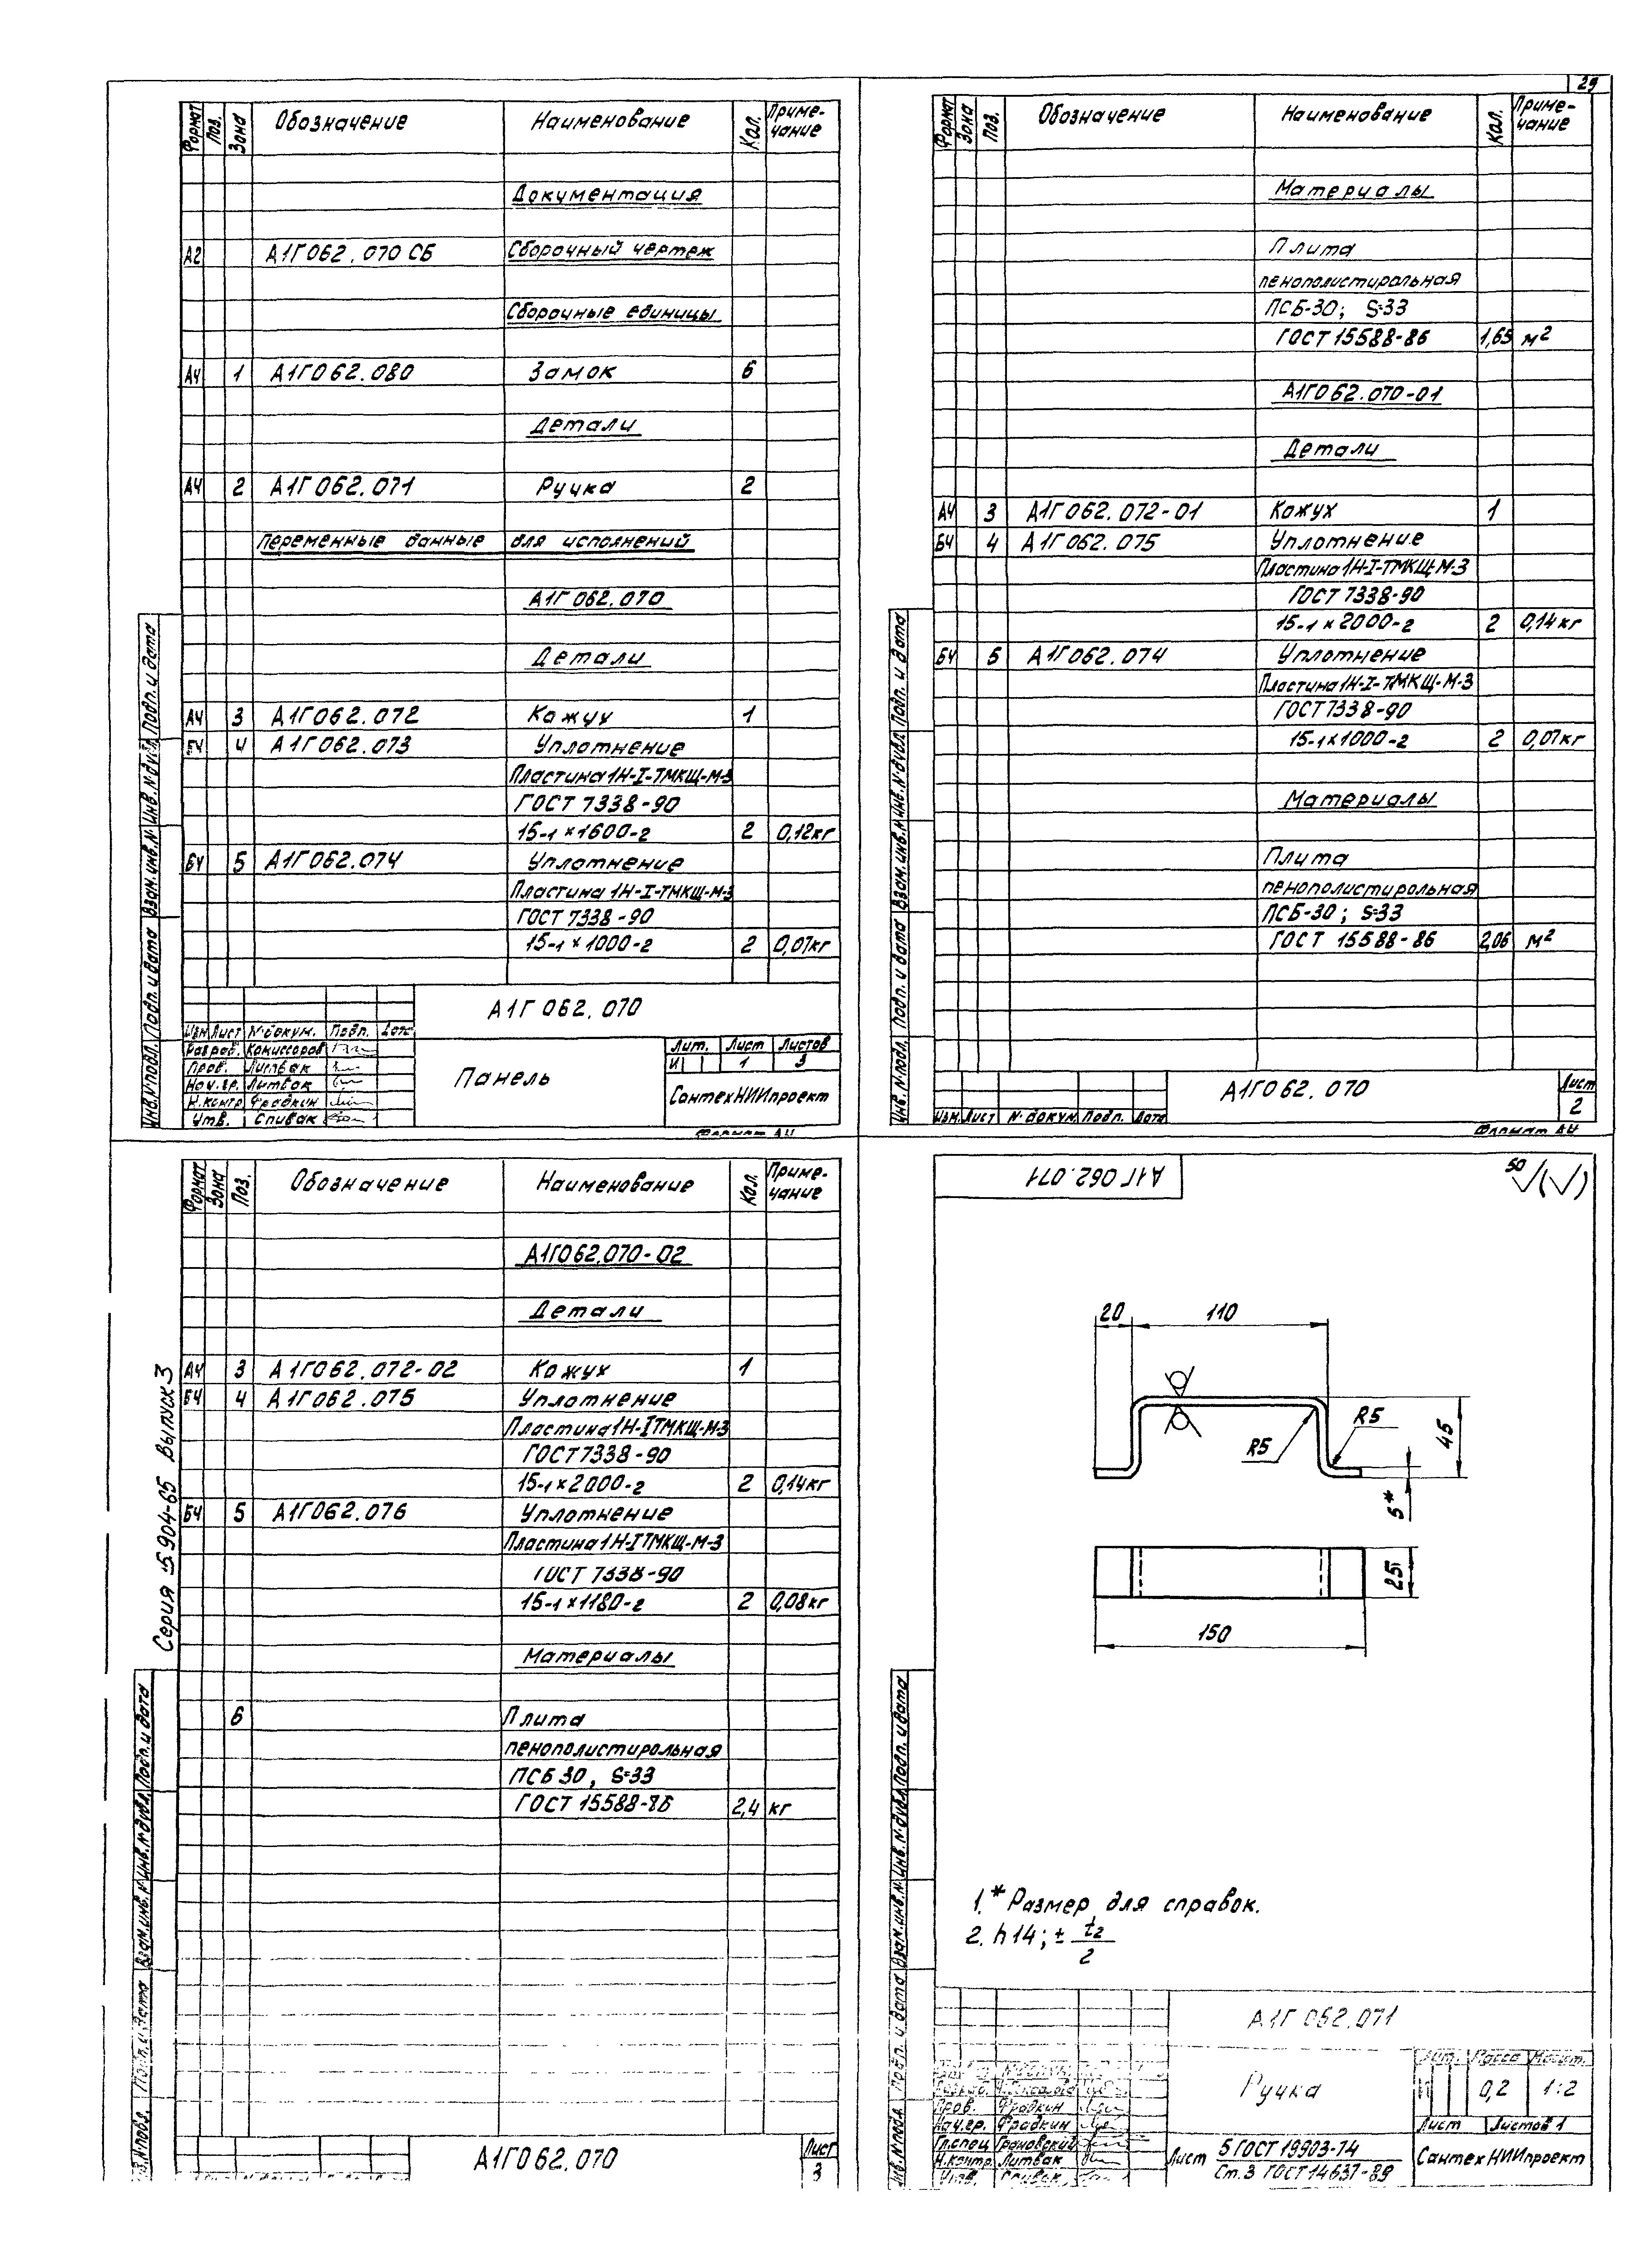 29
Формат Поз. Зона Обозначение Наименование Кол. Примечание
Документация
А2 А1Г062.070 СБ Сборочный чертеж
Сборочные единицы
А4 1 А1Г062.080 Замок 6
Детали
А4 2 А1Г062.071 Ручка 2
Переменные данные для исполнений
А1Г062.070
Детали
А4 3 А1Г062.072 Кожух 1
Б4 4 А1Г062.073 Уплотнение
Пластина 1Н-I-ТМКЩ-М-3
ГОСТ 7338-90
15-1×1600-2 2 0,12кг
Б4 5 А1Г062.074 Уплотнение
Пластина 1Н-I-ТМКЩ-М-3
ГОСТ 7338-90
15-1×1000-2 2 0,07кг
А1Г 062.070
Изм Лист № докум. Подп. Дата
Разраб. Комиссаров
Пров. Литвак
Нач.гр. Литвак
Н.контр Фрадкин
Утв. Спивак
Панель
Лит. Лист Листов
И 1 3
СантехНИИпроект
Формат А4
Инв.№ подл. Подп. и дата Взам.инв.№ Инв.№ дубл. Подп. и дата
Формат Зона Поз. Обозначение Наименование Кол. Примечание
Материалы
Плита
пенополистирольная
ПСБ-30; S=33
ГОСТ 15588-86 1,65 м2
А1Г062.070-01
Детали
А4 3 А1Г062.072-01 Кожух 1
Б4 4 А1Г062.075 Уплотнение
Пластина 1Н-I-ТМКЩ-М-3
ГОСТ 7338-90
15-1×2000-2 2 0,14кг
Б4 5 А1Г062.074 Уплотнение
Пластина 1Н-I-ТМКЩ-М-3
ГОСТ 7338-90
15-1×1000-2 2 0,07кг
Материалы
Плита
пенополистирольная
ПСБ-30; S=33
ГОСТ 15588-86 2,06 м2
Изм. Лист № докум. Подп. Дата
А1Г062.070
Лист
2
Формат А4
Инв.№ подл. Подп. и дата Взам.инв.№ Инв.№ дубл. Подп. и дата
Формат Зона Поз. Обозначение Наименование Кол. Примечание
А1Г062.070-02
Детали
А4 3 А1Г062.072-02 Кожух 1
Б4 4 А1Г062.075 Уплотнение
Пластина 1Н-IТМКЩ-М-3
ГОСТ 7338-90
15-1×2000-2 2 0,14кг
Б4 5 А1Г062.076 Уплотнение
Пластина 1Н-IТМКЩ-М-3
ГОСТ 7338-90
15-1×1180-2 2 0,08кг
Материалы
6 Плита
пенополистирольная
ПСБ 30, S=33
ГОСТ 15588-86 2,4 кг
А1Г062.070
Лист
3
Серия 5.904-65 Выпуск 3
Подп. и дата Взам.инв.№ Инв.№ дубл. Подп. и дата
А1Г 062.071
50
20 110
R5
R5
45
5*
25
150
1.* Размер для справок.
2. h14; ± t2/2
А1Г 062.071
Пров. Фрадкин
Нач.гр. Фрадкин
Гл.спец Грановский
Н.контр. Литвак
Утв. Спивак
Ручка
Лит. Масса Масшт.
И 0,2 1:2
Лист Листов 1
Лист 5 ГОСТ 19903-74
Ст.3 ГОСТ 14637-89
СантехНИИпроект
Инв.№ подл. Подп. и дата Взам.инв.№ Инв.№ дубл. Подп. и дата